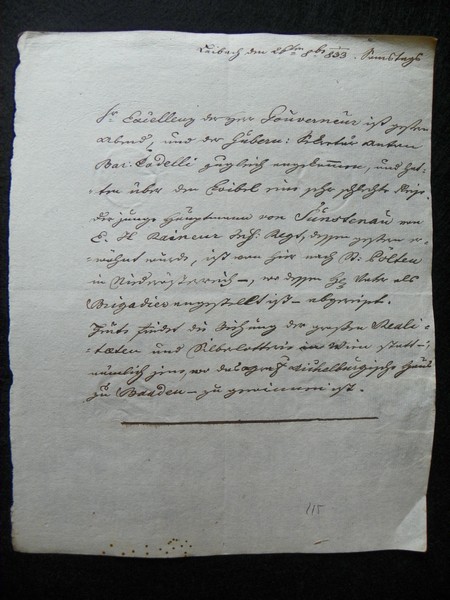 Laibach den 26ten 8ber 1833. Samstags
Sr Excellenz der Herr Gouverneur ist gestern
Abend, und der Gubern: Sekretär Anton
Bar: Codelli zugleich angekommen, und hat-
ten über den Loibel eine sehr schlechte Reise.
Der junge Hauptmann von Fürstenau von
E. H. Rainer Inf: Regt, dessen gestern er-
wähnt wurde, ist von hier nach St. Pölten
in Niederösterreich, wo dessen Hr Vater als
Brigadier angestellt ist – abgereist.
Heute findet die Ziehung der großen Reali-
tæten und Silberlotterie in Wien statt –
nämlich jene, wo das Haus
zu Baaden – zu gewinnen ist.
115